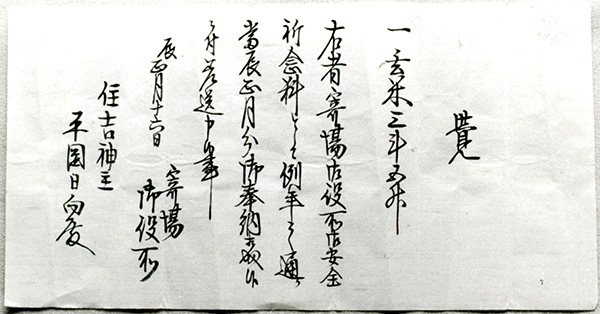 覚
一玄米三斗五升
右者寄場御役所御安全
祈念料として例年之通
当辰正月分御奉納被成
御役所
辰正月十六日
寄場
御役所
住吉神主
平岡日向殿